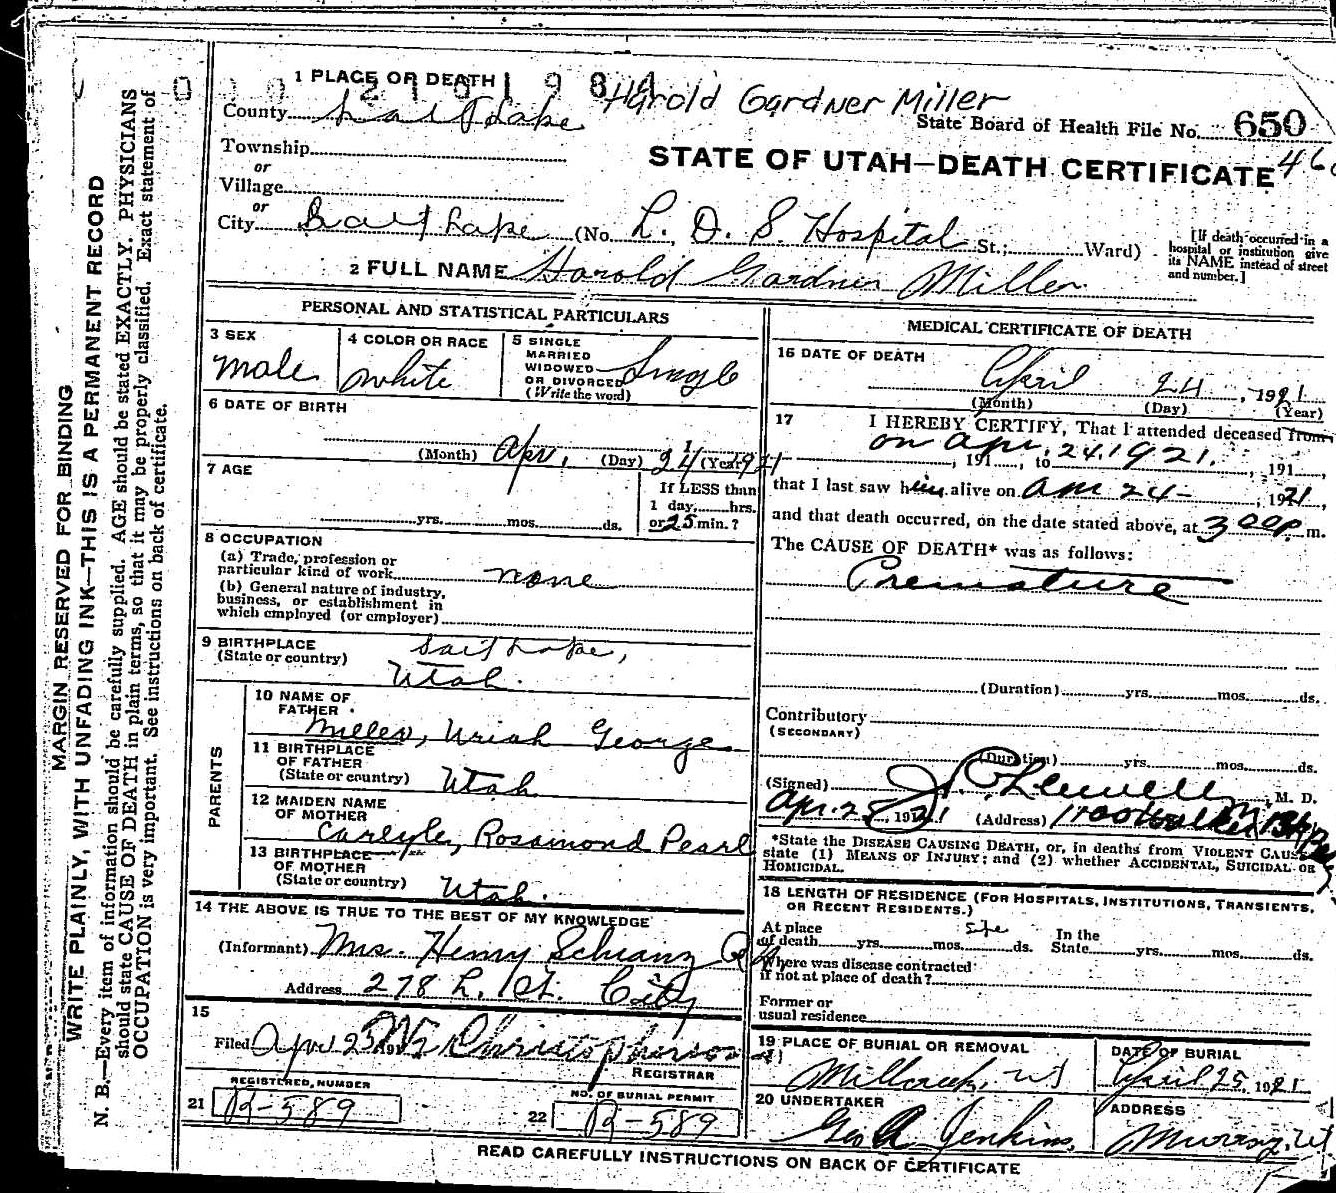 1 PLACE OF DEATH
Harold Gardner Miller
County Salt Lake
State Board of Health File No. 650
Township
STATE OF UTAH—DEATH CERTIFICATE
or
Village
or
City Salt Lake (No. L. D. S. Hospital St.; Ward)
[If death occurred in a hospital or institution give its NAME instead of street and number.]
2 FULL NAME Harold Gardner Miller
PERSONAL AND STATISTICAL PARTICULARS
3 SEX
male
4 COLOR OR RACE
white
5 SINGLE
MARRIED
WIDOWED
OR DIVORCED
(Write the word)
Single
6 DATE OF BIRTH
(Month) Apr. (Day) 24 (Year) 1921
7 AGE
yrs. mos. ds.
If LESS than
1 day, hrs.
or 25 min.?
8 OCCUPATION
(a) Trade, profession or
particular kind of work none
(b) General nature of industry,
business, or establishment in
which employed (or employer)
9 BIRTHPLACE
(State or country)
Salt Lake,
Utah.
PARENTS
10 NAME OF
FATHER
Miller, Uriah George
11 BIRTHPLACE
OF FATHER
(State or country) Utah
12 MAIDEN NAME
OF MOTHER
Carlyle, Rosamond Pearl
13 BIRTHPLACE
OF MOTHER
(State or country) Utah.
14 THE ABOVE IS TRUE TO THE BEST OF MY KNOWLEDGE
(Informant) Mrs. Henry Schranz
Address 278 L. St. City
15
Filed Apr 25 Christopherson
REGISTRAR
REGISTERED NUMBER
21 B-589
NO. OF BURIAL PERMIT
22 B-589
MEDICAL CERTIFICATE OF DEATH
16 DATE OF DEATH
April 24, 1921
(Month) (Day) (Year)
17 I HEREBY CERTIFY, That I attended deceased from
on Apr. 24. 1921.
, 191 , to , 191 ,
that I last saw him alive on Apr 24- , 1921,
and that death occurred, on the date stated above, at 3 00 p. m.
The CAUSE OF DEATH* was as follows:
Premature
(Duration) yrs. mos. ds.
Contributory
(SECONDARY)
(Duration) yrs. mos. ds.
(Signed) M. D.
Apr. 25, 1921 (Address)
*State the DISEASE CAUSING DEATH, or, in deaths from VIOLENT CAUSES
state (1) MEANS OF INJURY; and (2) whether ACCIDENTAL, SUICIDAL OR
HOMICIDAL.
18 LENGTH OF RESIDENCE (FOR HOSPITALS, INSTITUTIONS, TRANSIENTS,
OR RECENT RESIDENTS.)
At place In the
of death yrs. mos. ds. State yrs. mos. ds.
Where was disease contracted
if not at place of death?
Former or
usual residence
19 PLACE OF BURIAL OR REMOVAL
Millcreek, Ut
DATE OF BURIAL
April 25 1921
20 UNDERTAKER
Geo A Jenkins.
ADDRESS
Murray, Ut
READ CAREFULLY INSTRUCTIONS ON BACK OF CERTIFICATE
MARGIN RESERVED FOR BINDING
WRITE PLAINLY, WITH UNFADING INK—THIS IS A PERMANENT RECORD
N. B.—Every item of information should be carefully supplied. AGE should be stated EXACTLY. PHYSICIANS
should state CAUSE OF DEATH in plain terms, so that it may be properly classified. Exact statement of
OCCUPATION is very important. See instructions on back of certificate.